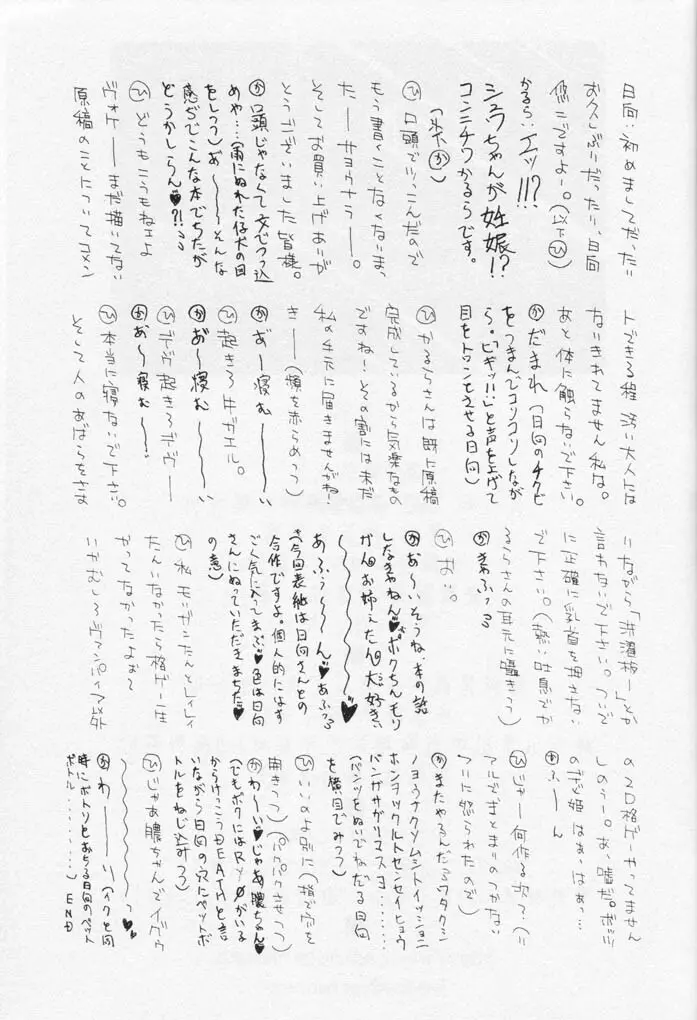 日向：初めましてだったり
お久しぶりだったり、日向
悠二ですよー。(以下㋪)
かるら：エッ!!!?
シュウちゃんが妊娠!?
コンニチワかるらです。
(以下㋕)
㋪口頭でツッこんだので
もう書くことなくないまっ
たーサヨウナラー。
そしてお買い上げありが
とうございました皆様。
㋕口頭じゃなくて文でつっ込
めや…(雨にぬれた仔犬の目
をしつつ)あ〜〜〜そんな
感じでこんな本でちたが
どうかしらん♥?!
㋪どうもこうもねェよ
ヴォケーーまだ描いてない
原稿のことについてコメン
トできる程 汚い大人には
なりきれてません私は。
あと体に触らないで下さい。
㋕だまれ(日向のチクビ
をつまんでコリコリしなが
ら。「ピギッ!!」と声を上げて
目をトロンとさせる日向)
㋪かるらさんは既に原稿
完成しているから気楽なもの
ですね！その割には未だ
私の手元に届きませんがね！
きーー(頬を赤らめつつ)
㋕あ゛ー寝む〜〜い
㋪起きろ 牛ガエル。
㋕あ゛〜寝む〜〜い
㋪デヴ起きろデヴー
㋕あ゛〜寝む〜〜
㋪本当に寝ないで下さい。
そして人のあばらをさす
りながら「洗濯板ー」とか
言わないで下さい。ついで
に正確に乳首を押さない
で下さい。(熱い吐息でか
るらさんの耳元に囁きつつ)
㋕きゃふっ
㋪おい。
㋕あ〜いそうね、本の話
しなきゃねん♥ボクちんモリ
お姉たん 大好き
〜〜〜♥
あふぅ〜〜ん♥あふっ
(今回表紙は日向さんとの
合作ですよ。個人的にはす
ごく気に入ってまふ♥色は日向
さんにぬっていただきまちた♥
の意)
㋪私モリガンたんとレイレイ
たんいなかったら格ゲー一生
やってなかったよおて
いうかむしろヴァンパイア以外
の2D格ゲーやってません
しのぅー。あ、嘘だ。
はぁ、はぁっ…
㋕ふーん
㋪じゃー何作る次て(リ
アルで まりのつかない
に怒られたので)
㋕またやるんだ ワタクシ
ノヨウナクソムシトイッショニ
ホンヲツクルトセンセイヒョウ
バンガサガリマスヨ………
(パンツをぬいでねだる日向
を横目でみつつ)
㋪いいのよ別に(指で穴を
開きつつ)(パクパクさせつつ)
㋕わーい♥じゃあ膿ちゃん♥
(でもボクには がいる
からけっこうDEATHと言
いながら日向の穴にペットボ
トルをねじ込みつつ)
㋪じゃあ膿ちゃんでイグゥ
〜〜〜っ♥
㋕わーーーい(イクと同
時にボトリとおちる日向のペット
ボトル………)END